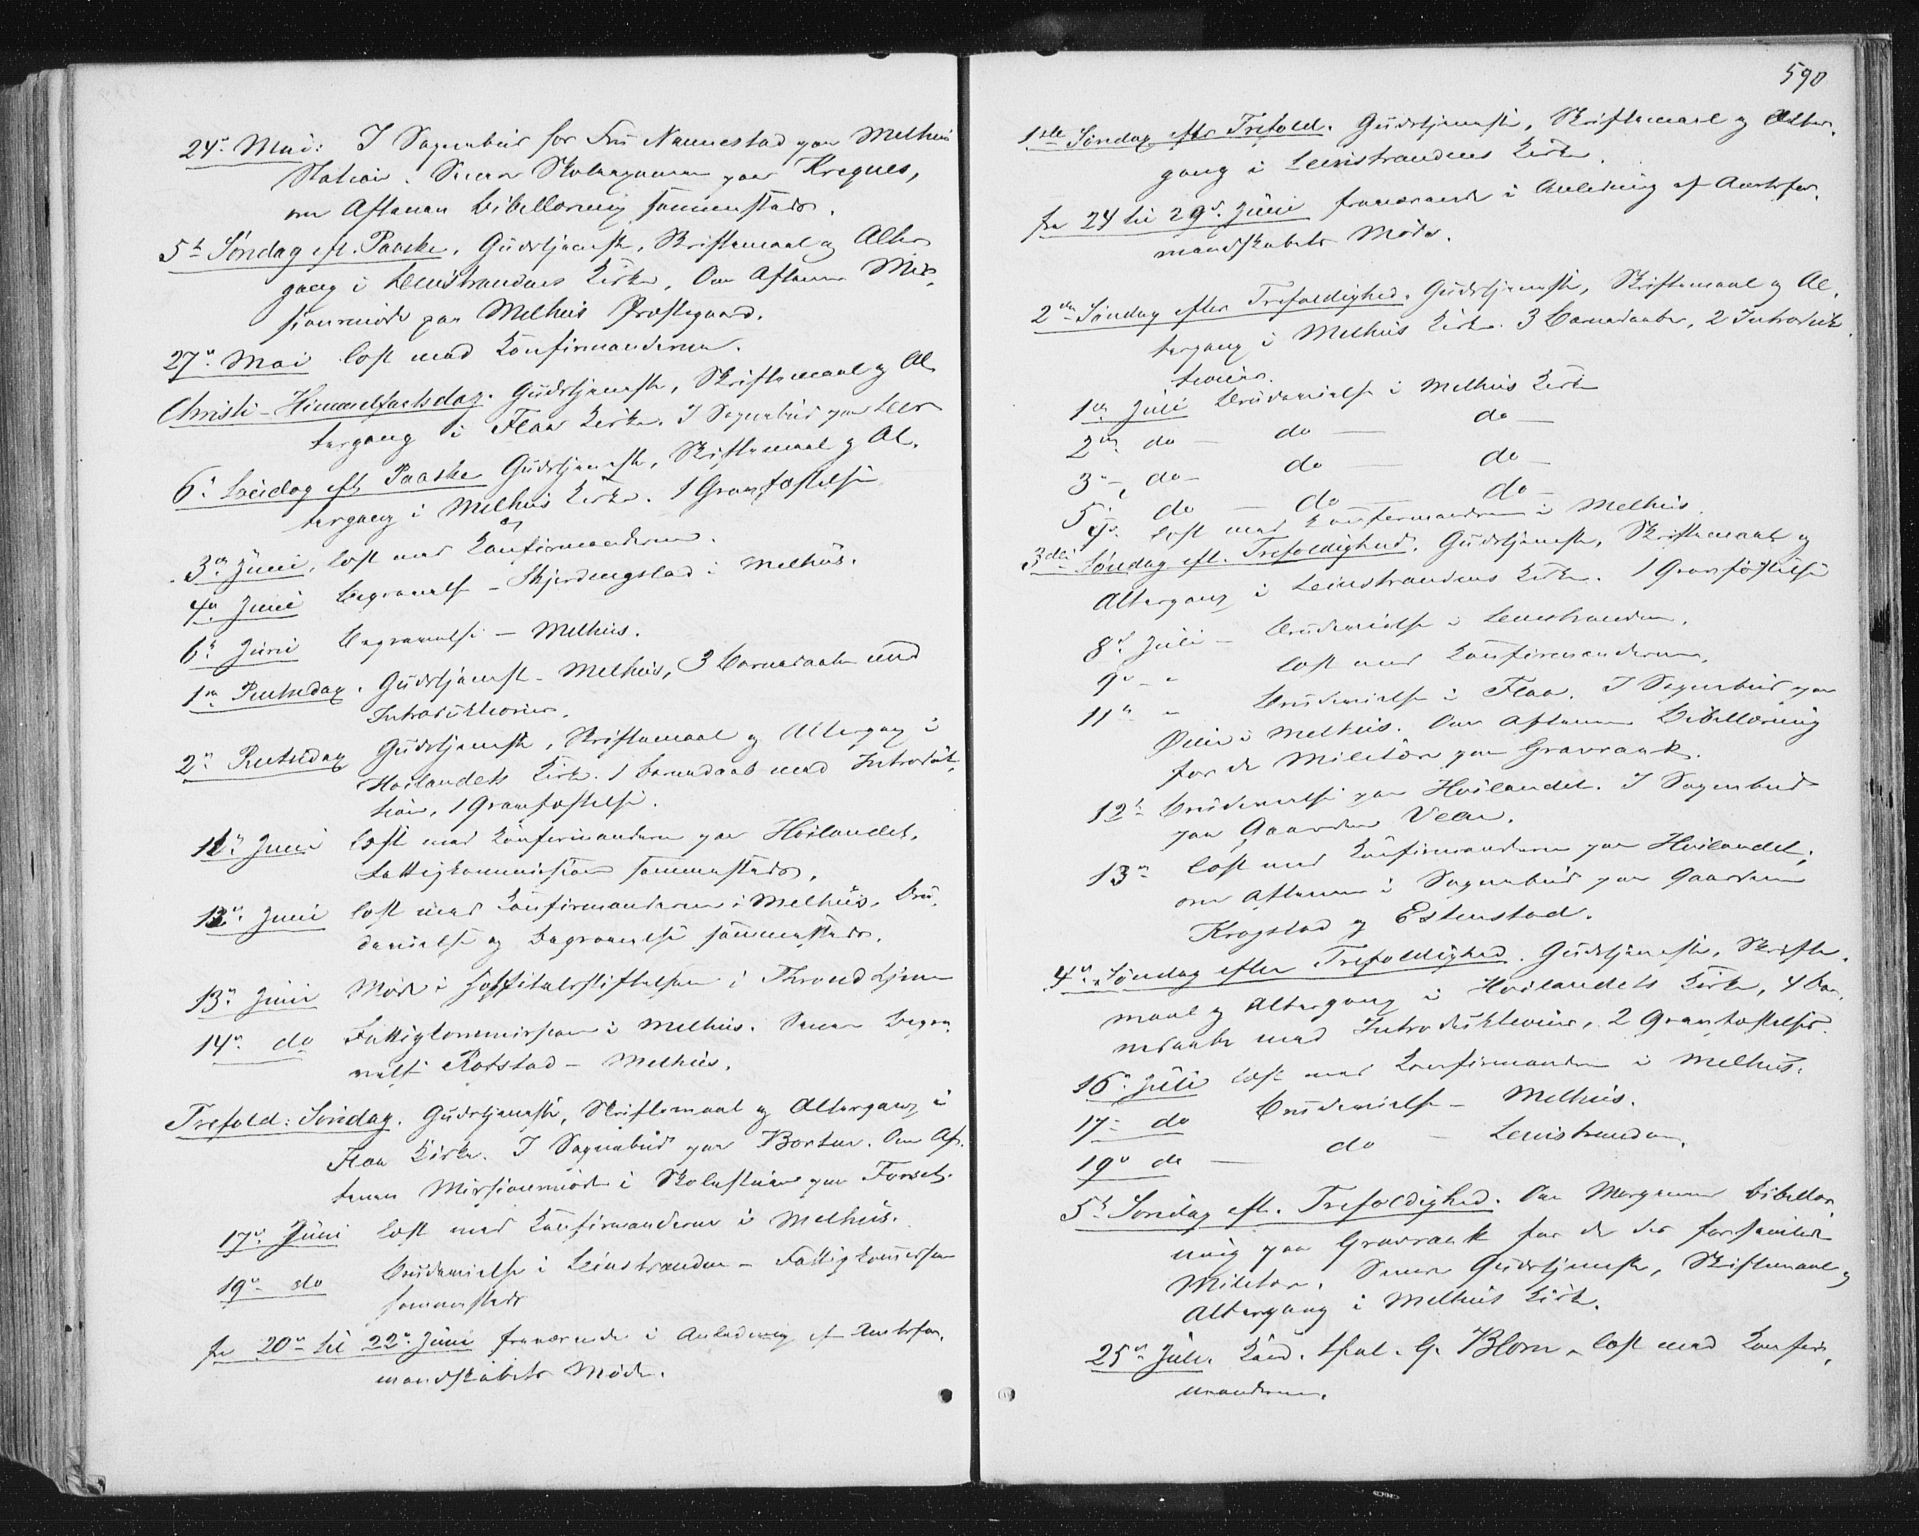 24de Mai: I Sognebud for Fru Nannestad paa Melhuus
Station. Senere Skoleexamen paa Kregnes,
om Aftenen Bibellæsning sammesteds.
5te Søndag eft. Paaske. Gudstjeneste, Skriftemaal og Alter
gang i Leinstrandens Kirke. Om Aftenen Mis-
sionsmøde paa Melhus Præstegaard.
27de Mai læst med Konfirmanderne.
Christi-Himmelfartsdag. Gudstjeneste, Skriftemaal og Al-
tergang i Flaa Kirke. I Sognebud paa Leer
6te Søndag eft Paaske Gudstjeneste, Skriftemaal og Al-
tergang i Melhus Kirke. 1 Gravfæstelse
3de Juni, læst med Konfirmanderne.
4de Juni Begravelse – Skjerdingstad i Melhus.
6te Juni Begravelse – Melhus.
1ste Pintsedag. Gudstjeneste – Melhus, 3 Barnedaabe med
Introduktioner.
2den Pintsedag Gudstjeneste, Skriftemaal og Altergang i
Høilandets Kirke. 1 Barnedaab med Introduk-
tion, 1 Gravfæstelse.
11te Juni læst med Konfirmanderne paa Høilandet.
Fattigkommission sammesteds.
12te Juni læst med Konfirmanderne i Melhus. Bru-
devielse og Begravelse sammesteds.
13de Juni Møde i Hospitalsstiftelsen i Throndhjem
14de do Fattigkommission i Melhus. Senere Begra-
velse Rodstad – Melhus.
Trefold: Søndag. Gudstjeneste, Skriftemaal og Altergang i
Flaa Kirke. I Sognebud paa Borten. Om Af-
tenen Missionsmøde i Skolestuen paa Forset.
17de Juni læst med Konfirmanderne i Melhus.
19de do Brudevielse i Leinstranden – Fattigkommission
sammesteds
fra 20de til 22de Juni fraværende i Anledning af Amtsfor-
mandskabets Møde.
590
1ste Søndag eftr Trefold. Gudstjeneste, Skriftemaal og Alter-
gang i Leinstrandens Kirke.
fra 24 til 29de Juni fraværende i Anledning af Amtsfor-
mandskabets Møde.
2den Søndag efter Trefoldighed. Gudstjeneste, Skriftemaal og Al-
tergang i Melhus Kirke. 3 Barnedaabe, 2 Introduk-
tioner.
1ste Juli Brudevielse i Melhus Kirke
2den do – do – do –
3de do – do – do –
5te do – do – do –
4de læst med Konfirmanderne i Melhus.
3die Søndag eft. Trefoldighed. Gudstjeneste, Skriftemaal og
Altergang i Leinstrandens Kirke. 1 Gravfæstelse
8de Juli – Brudevielse i Leinstranden.
9de – " læst med Konfirmanderne.
11te " Brudevielse i Flaa. I Sognebud paa
Øien i Melhus. Om Aftenen Bibellæsning
for de Militære paa Gravraak.
12te Brudevielse paa Høilandet. I Sognebud
paa Gaarden Velen.
13de læst med Konfirmanderne paa Høilandet,
om Aftenen i Sognebud paa Gaardene
Krogstad og Estenstad.
4de Søndag efter Trefoldighed. Gudstjeneste, Skrifte-
maal og Altergang i Høilandets Kirke, 4 Bar-
nedaabe med Introduktioner, 2 Gravfæstelser.
16de Juli læst med Konfirmanderne i Melhus.
17de do Brudevielse – Melhus.
19de do – do – Leinstranden.
5te Søndag eft. Trefoldighed. Om Morgenen Bibellæs-
ning paa Gravraak for de der forsamlede
Militære. Senere Gudstjeneste, Skriftemaal og
Altergang i Melhus Kirke.
25de Juli. Kand. theol. G. Blom læst med Konfir-
manderne.